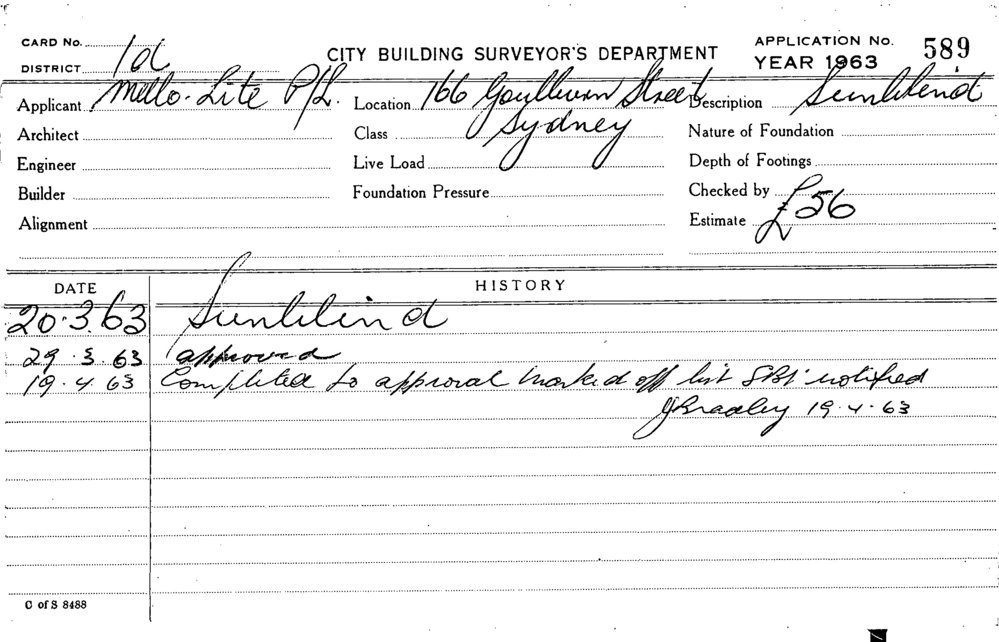 CARD No.
DISTRICT 1a
CITY BUILDING SURVEYOR'S DEPARTMENT
APPLICATION No. 589
YEAR 1963
Applicant Mello-Lite P/L. Location 166 Goulburn Street Description Sunblind
Architect Class Sydney Nature of Foundation
Engineer Live Load Depth of Footings
Builder Foundation Pressure Checked by
Alignment Estimate £56
DATE HISTORY
20.3.63 Sunblind
29.3.63 approved
19.4.63 Completed to approval marked off list SBI notified
JBradley 19.4.63
C of S 8488